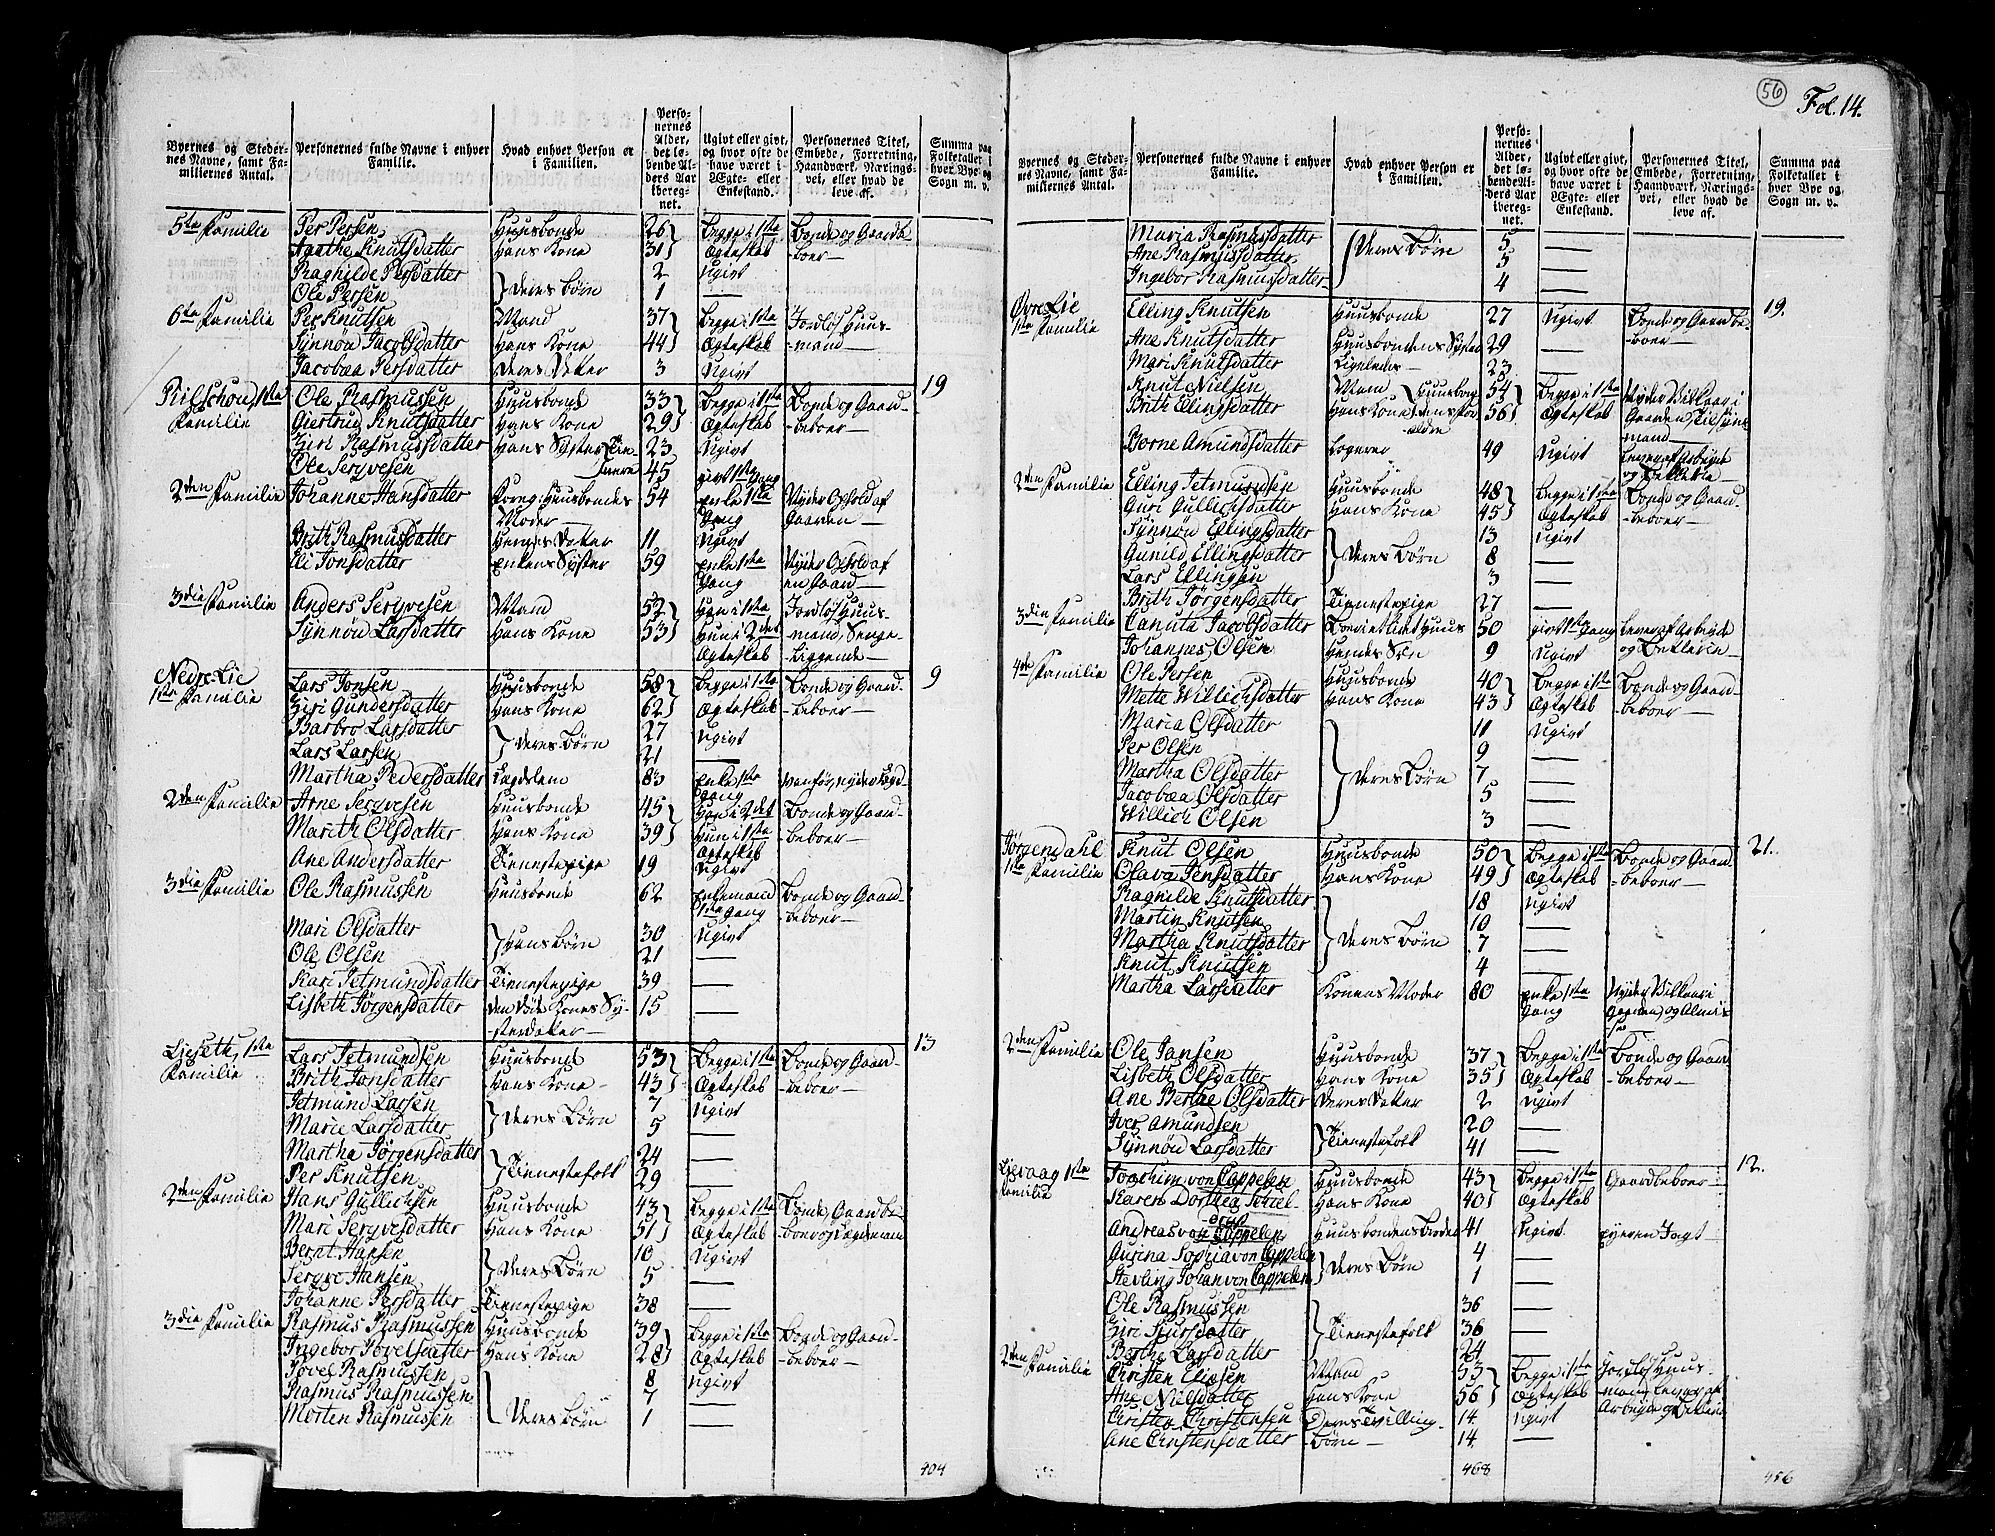 56 Fol. 14.
Byernes og Stedernes Navne, samt Familiernes Antal. | Personernes fulde Navne i enhver Familie. | Hvad enhver Person er i Familien. | Personernes Alder, det løbende Alders Aar iberegnet. | Ugivt eller givt, og hvor ofte de have været i Ægte- eller Enkestand. | Personernes Titel, Embede, Forretning, Haandværk, Næringsvei, eller hvad de leve af. | Summa paa Folketallet i hver Bye og Sogn m. v.
5te Familie | Per Persen | Huusbonde | 26 | begge i 1ste | Bonde og Gaardbe-
Agathe Knutsdatter | Hans Kone | 31 | Ægteskab | -boer
Raghilde Persdatter | deres Børn | 2 | Ugivt
Ole Persen | 1 | —
6te Familie | Per Knutsen | Mand | 37 | begge i 1ste | Jordløs Huus-
Synnøu Jacobsdatter | Hans Kone | 44 | Ægteskab | -mand
Jacobæa Persdatter | deres Dotter | 3 | Ugivt
1ste | Ole Rasmussen | Huusbonde | 33 | begge i 1ste | Bonde og Gaard- | 19
Familie | Giertrud Knutsdatter | Hans Kone | 29 | Ægteskab | -beboer
Ziri Rasmusdatter | Hans Syster | 23 | Ugivt
Ole Sergvesen | 45 | givt 1ste Gang
2den Familie | Johanne Hansdatter | Huusbondes | 54 | Enke 1ste | Nyder Ophold af
Moder | Gang | Gaarden
Brith Rasmusdatter | Hendes Dotter | 11 | Ugivt
Eli Jonsdatter | Enkens Syster | 59 | Enke 1ste | Nyder Ophold af
Gang | en Gaard
3die Familie | Anders Sergvesen | Mand | 52 | Han i 1ste | Jordløs Huus-
Synnøu Larsdatter | Hans Kone | 53 | Hun i 2det | -mand, Senge-
Ægteskab | -liggende
Nedre Lie | Lars Jonsen | Huusbonde | 58 | begge i 1ste | Bonde og Gaard- | 9
1ste Familie | Ziri Gundersdatter | Hans Kone | 62 | Ægteskab | -beboer
Barbro Larsdatter | deres Børn | 27 | Ugivt
Lars Larsen | 21 | —
Martha Pedersdatter | Lægdslem | 83 | Enke 1ste Gang
2den Familie | Arne Sergvesen | Huusbonde | 45 | Han i 2det | Bonde og Gaard-
Marith Olsdatter | Hans Kone | 39 | Hun i 1ste | -beboer
Ægteskab
Ane Andersdatter | Tienestepige | 19 | Ugivt
3die Familie | Ole Rasmussen | Huusbonde | 62 | Enkemand | Bonde og Gaard-
1ste Gang | -beboer
Mari Olsdatter | Hans Børn | 30 | Ugivt
Ole Olsen | 21 | —
Kari Jetmundsdatter | Tienestepige | 39 | —
Lisbeth Jørgensdatter | den døde Kones Sy- | 15 | —
-sterdotter
Lieseth, 1ste | Lars Jetmundsen | Huusbonde | 53 | begge i 1ste | Bonde og Gaard- | 13
Familie | Brith Jonsdatter | Hans Kone | 43 | Ægteskab | -beboer
Jetmund Larsen | deres Børn | 7 | Ugivt
Marie Larsdatter | 5 | —
Martha Jørgensdatter | Tienestefolk | 24 | —
Per Knutsen | 29 | —
2den Familie | Hans Gullichsen | Huusbonde | 43 | begge i 1ste | Bonde, Gaardbe-
Mari Sergvesdatter | Hans Kone | 51 | Ægteskab | -boer og Lægdsmand
Bernt Hansen | deres Børn | 10 | Ugivt
Sergve Hansen | 5 | —
Johanne Persdatter | Tienestepige | 38 | —
3die Familie | Rasmus Rasmussen | Huusbonde | 39 | begge i 1ste | Bonde og Gaard-
Ingebor Povelsdatter | Hans Kone | 28 | Ægteskab | -beboer
Povel Rasmussen | deres Børn | 8 | Ugivt
Rasmus Rasmussen | 7 | —
Morten Rasmussen | 1 | —
404
Byernes og Stedernes Navne, samt Familiernes Antal. | Personernes fulde Navne i enhver Familie. | Hvad enhver Person er i Familien. | Personernes Alder, det løbende Alders Aar iberegnet. | Ugivt eller givt, og hvor ofte de have været i Ægte- eller Enkestand. | Personernes Titel, Embede, Forretning, Haandværk, Næringsvei, eller hvad de leve af. | Summa paa Folketallet i hver Bye og Sogn m. v.
Maria Rasmusdatter | deres Børn | 5 | —
Ane Rasmusdatter | 5 | —
Ingebor Rasmusdatter | 4 | —
Øvre Lie | Elling Knutsen | Huusbonde | 27 | Ugivt | Bonde og Gaardbe- | 19.
1ste Familie | -boer
Ane Knutsdatter | Huusbondens Syster | 29 | —
Mari Knutsdatter | Ligeledes | 23 | —
Knut Nielsen | Mand | 54 | begge i 1ste | Nyder Vilkaar i
Brith Ellingsdatter | Hans Kone | 56 | Ægteskab | Gaarden
Berne Amundsdatter | Logerer | 49 | Ugivt | Lever af Arbeyde
og Betlerie
2den Familie | Elling Jetmundsen | Huusbonde | 48 | begge i 1ste | Bonde og Gaard-
Guri Gullichsdatter | Hans Kone | 45 | Ægteskab | -beboer
Synnøu Ellingsdatter | deres Børn | 13 | Ugivt
Gunild Ellingsdatter | 8 | —
Lars Ellingsen | 3 | —
Brith Jørgensdatter | Tienestepige | 27 | —
3die Familie | Canuta Jacobsdatter | 50 | givt 1ste Gang | Lever af Arbeyde
Johannes Olsen | Hendes Søn | 9 | Ugivt | og Betlerie
4de Familie | Ole Persen | Huusbonde | 40 | begge i 1ste | Bonde og Gaard-
Mette Willichsdatter | Hans Kone | 43 | Ægteskab | -beboer
Maria Olsdatter | deres Børn | 11 | Ugivt
Per Olsen | 9 | —
Martha Olsdatter | 7 | —
Jacobæa Olsdatter | 5 | —
Willich Olsen | 3 | —
Jørgendahl | Knut Olsen | Huusbonde | 50 | begge i 1ste | Bonde og Gaard- | 21.
1ste Familie | Olava Jensdatter | Hans Kone | 49 | Ægteskab | -beboer
Raghilde Knutsdatter | deres Børn | 18 | Ugivt
Martin Knutsen | 10 | —
Martha Knutsdatter | 7 | —
Knut Knutsen | 4 | —
Martha Larsdatter | Konens Moder | 80 | Enke 1ste | Nyder Vilkaar i
Gang | Gaarden, og Almis-
se
2den Familie | Ole Jansen | Huusbonde | 37 | begge i 1ste | Bonde og Gaard-
Lisbeth Olsdatter | Hans Kone | 35 | Ægteskab | -beboer
Ane Berthe Olsdatter | deres Dotter | 2 | Ugivt
Iver Amundsen | Tienestefolk | 20 | —
Synnøu Larsdatter | 41 | —
Lievaag 1ste | Joachim von Cappelen | Huusbonde | 43 | begge i 1ste | Gaardbeboer | 12.
Familie | Karen Dorthea | Hans Kone | 40 | Ægteskab
Andreas von Cappelen | Huusbondens Broder | 41 | Ugivt | eyer en Jagt
Gurina Sophia von Cappelen | deres Børn | 4 | —
Sterling Johan von Cappelen | 1 | —
Ole Rasmussen | Tienestefolk | 36 | —
Ziri Siursdatter | 36 | —
Berthe Larsdatter | 24 | —
2den Familie | Christen Eliasen | Mand | 53 | begge i 1ste | Jordløs Huus-
Ane Nielsdatter | Hans Kone | 56 | Ægteskab | mand lever af
Christen Christensen | Deres Tvilling- | 14 | Ugivt | Arbeyde og Betlerie
Ane Christensdatter | -børn | 14 | —
468 | 456